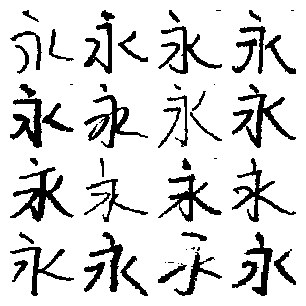 永永永永
永永永永
永永永永
永永永永